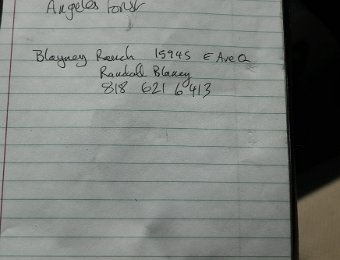 Angeles Forest
Blayney Ranch 15945 E Ave Q
Randall Blaney
818 621 6413